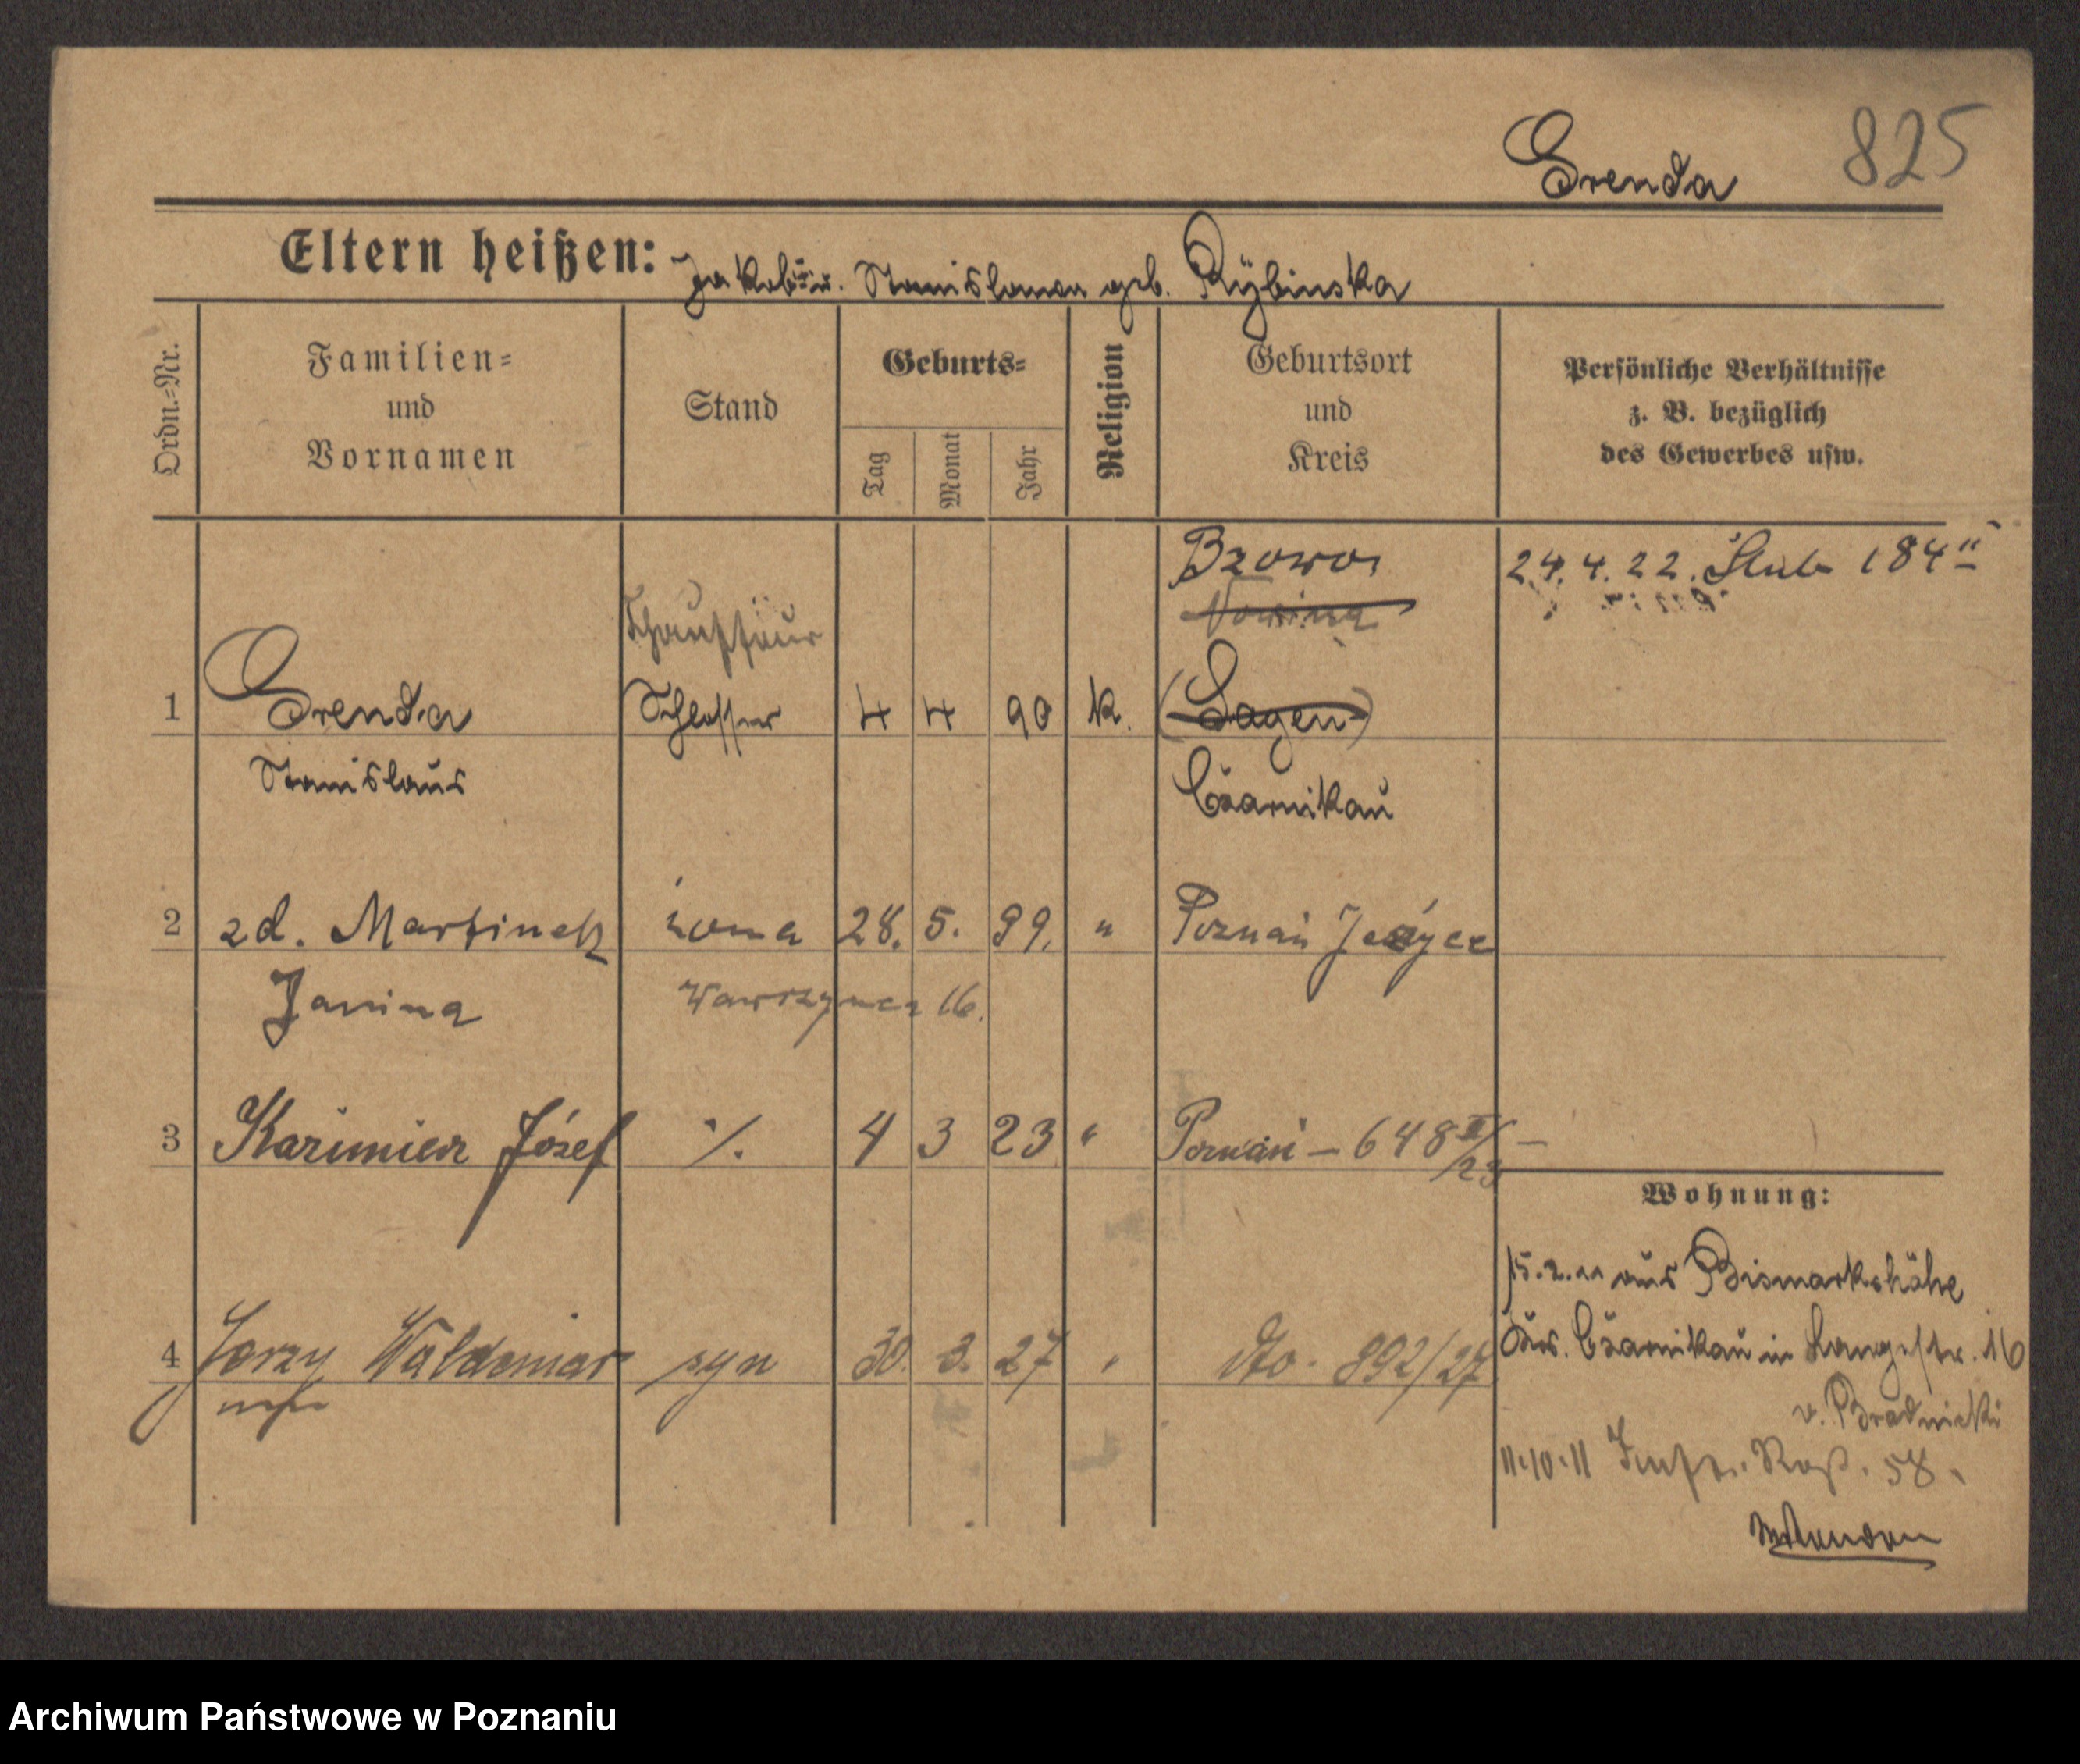 Grenda 825
Eltern heißen: Jakob u. Stanislawa geb. Rÿbinska
Ordn.-Nr.
Familien-
und
Vornamen
Stand
Geburts-
Tag
Monat
Jahr
Religion
Geburtsort
und
Kreis
Persönliche Verhältnisse
z. B. bezüglich
des Gewerbes usw.
Bzowo,
24. 4. 22. Ślub 184 II
Nowina
Schauffäur
1 Grenda Schlosser 4 4 90 k. (Sagen)
Stanislaus
Czarnikau
2 zd. Martinek żona 28. 5. 99. " Poznań Jeżyce
Janina
Wawrzyńca 16.
3 Kazimierz Józef ./. 4 3 23 " Poznań – 648 II/23 –
Wohnung:
15.2.11 aus Bismarkshöhe
4 Jerzy Waldemar syn 30. 3. 27 " dto. 892/27
Krs. Czarnikau in Langestr. 16
v. Brodnicki
11.10.11 58.
Archiwum Państwowe w Poznaniu